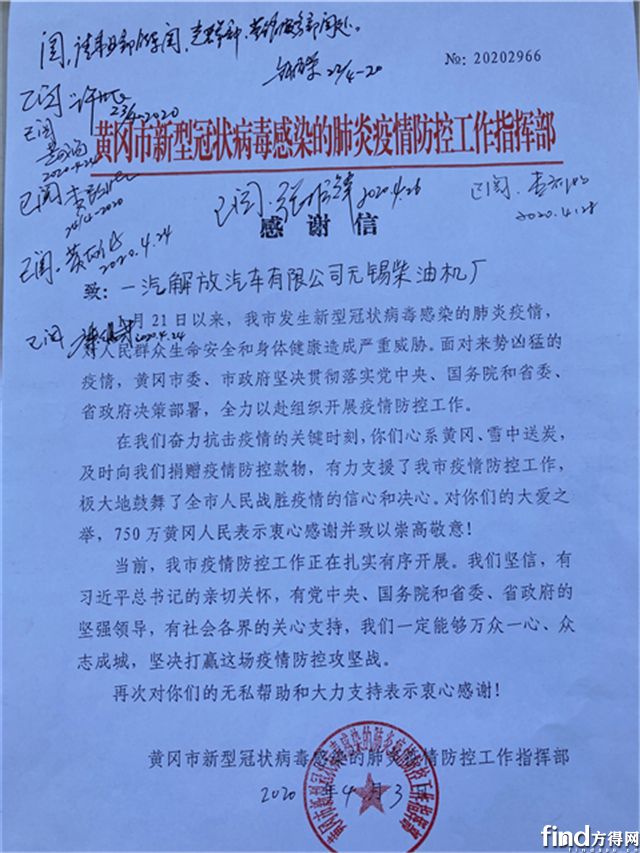 №: 20202966
22/4-20
已阅
23/4-2020
黄冈市新型冠状病毒感染的肺炎疫情防控工作指挥部
已阅
2020.4.24
已阅
24/4-2020
已阅 2020.4.26
已阅
2020.4.28
感谢信
已阅 2020.4.24
致：一汽解放汽车有限公司无锡柴油机厂
月21日以来，我市发生新型冠状病毒感染的肺炎疫情，
已阅 2020.4.24
人民群众生命安全和身体健康造成严重威胁。面对来势凶猛的
疫情，黄冈市委、市政府坚决贯彻落实党中央、国务院和省委、
省政府决策部署，全力以赴组织开展疫情防控工作。
在我们奋力抗击疫情的关键时刻，你们心系黄冈、雪中送炭，
及时向我们捐赠疫情防控款物，有力支援了我市疫情防控工作，
极大地鼓舞了全市人民战胜疫情的信心和决心。对你们的大爱之
举，750万黄冈人民表示衷心感谢并致以崇高敬意！
当前，我市疫情防控工作正在扎实有序开展。我们坚信，有
习近平总书记的亲切关怀，有党中央、国务院和省委、省政府的
坚强领导，有社会各界的关心支持，我们一定能够万众一心、众
志成城，坚决打赢这场疫情防控攻坚战。
再次对你们的无私帮助和大力支持表示衷心感谢！
黄冈市新型冠状病毒感染的肺炎疫情防控工作指挥部
2020年4月3
黄冈市新型冠状病毒感染的肺炎疫情防控工作指挥部
find方得网